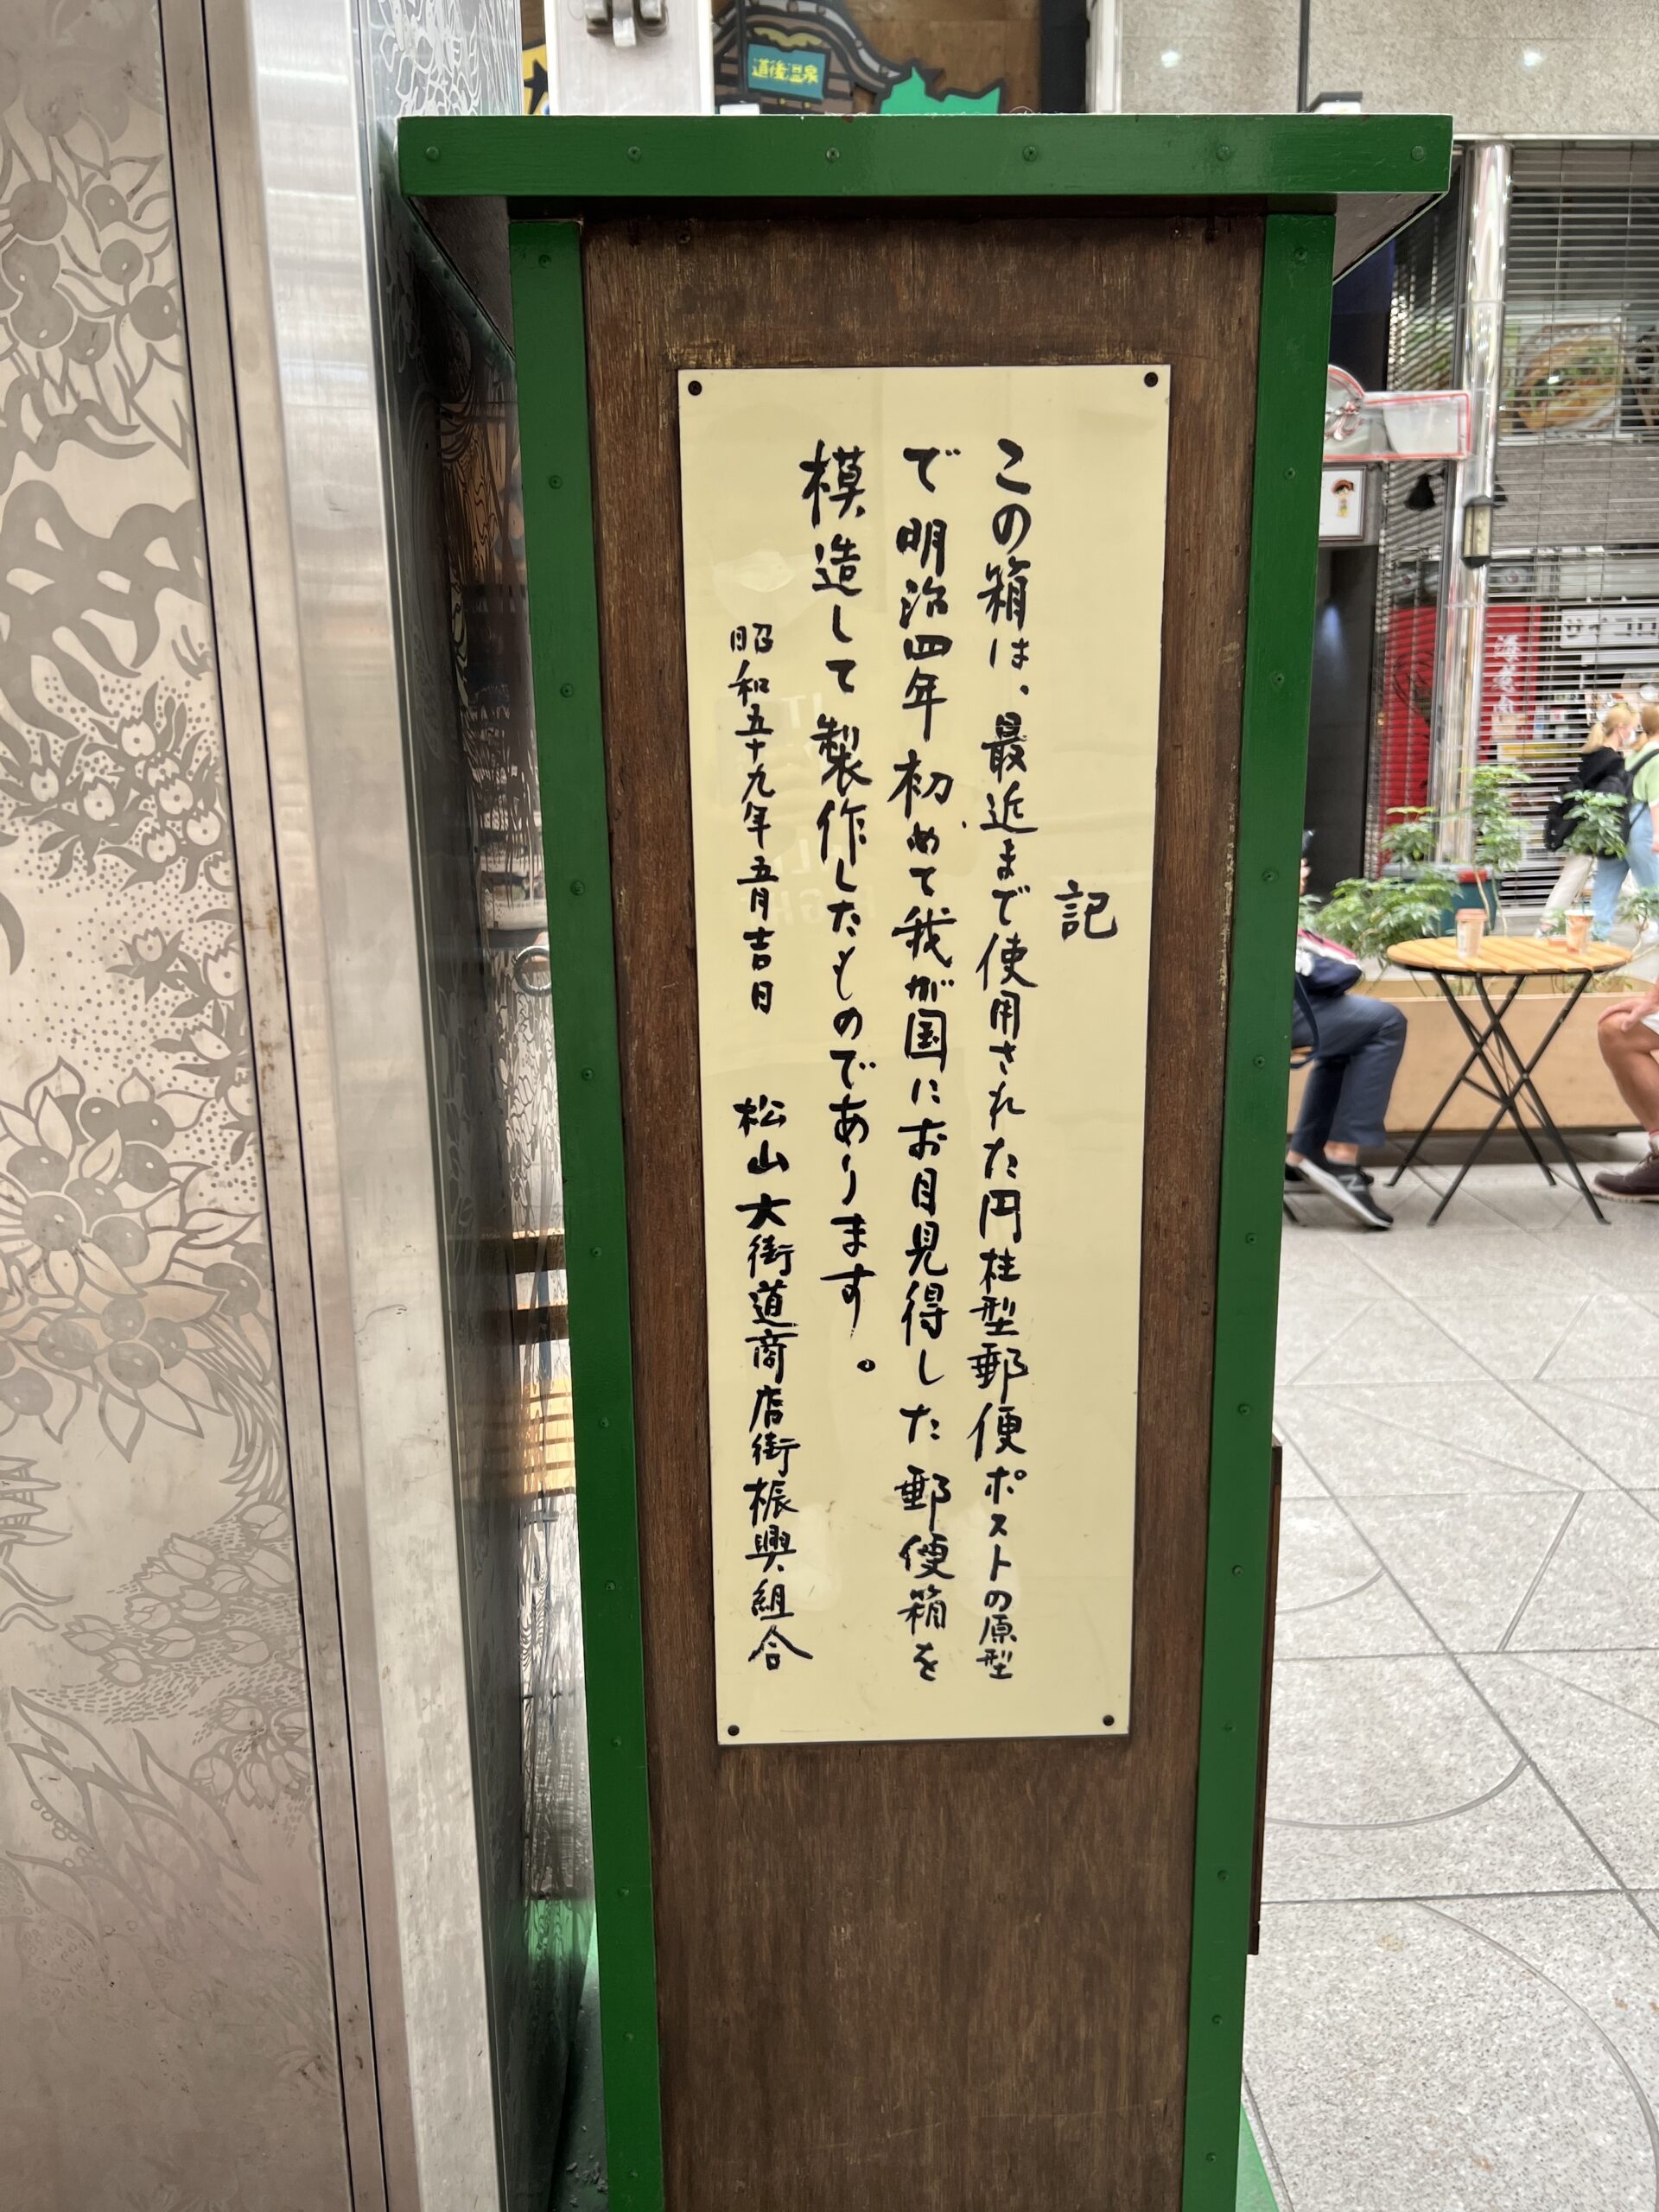 道後温泉
記
この箱は、最近まで使用された円柱型郵便ポストの原型
で明治四年初めて我が国にお目見得した郵便箱を
模造して製作したものであります。
昭和五十九年五月吉日 松山大街道商店街振興組合